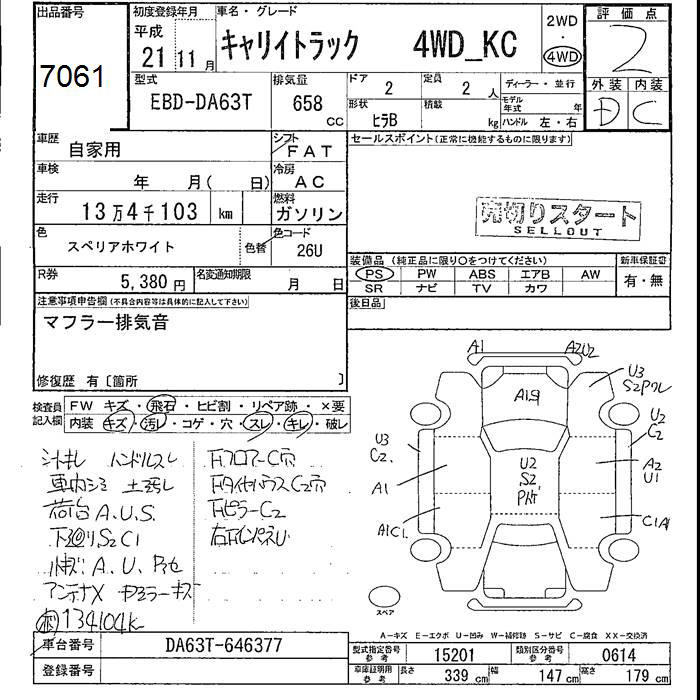 出品番号
7061
初度登録年月
平成
21年 11月
車名・グレード
キャリイトラック 4WD_KC
2WD
・
4WD
評価点
2
外装 内装
D C
型式
EBD-DA63T
排気量
658 CC
ドア
2
定員
2 人
形状
ヒラB
積載
kg
ディーラー・並行
モデル年式 年
ハンドル 左・右
車歴
自家用
シフト
FAT
車検
年 月( 日)
冷房
AC
走行
13万4千103 km
燃料
ガソリン
色
スペリアホワイト
色替
色コード
26U
R券
5,380 円
名変通知期限
月 日
セールスポイント(正常に機能するものに限ります)
売切りスタート
SELLOUT
装備品 (純正品に限り○をつけてください)
PS PW ABS エアB AW
SR ナビ TV カワ
新車保証書
有・無
後日品
注意事項申告欄(不具合内容等は具体的に記入して下さい)
マフラー排気音
修復歴 有〔箇所 〕
検査員記入欄
FW キズ・飛石・ヒビ割・リペア跡・×要
内装 キズ・汚レ・コゲ・穴・スレ・キレ・破レ
ハンドルスレ
車内シミ 土汚レ
荷台A.U.S.
下廻りS2C1
アンテナX
134104K
FフロアーC穴
FタイヤハウスC2穴
FピラーC2
A1 A2U2
U3
A1.9
U2
C2
U3
C2
A1
A1C1
U2
S2
A2
U1
C1A1
スペア
A-キズ E-エクボ U-凹み W-補修跡 S-サビ C-腐食 XX-交換済
車台番号
DA63T-646377
登録番号
型式指定番号 参考
15201
類別区分番号 参考
0614
車庫証明用 参考
長さ 339 cm 幅 147 cm 高さ 179 cm